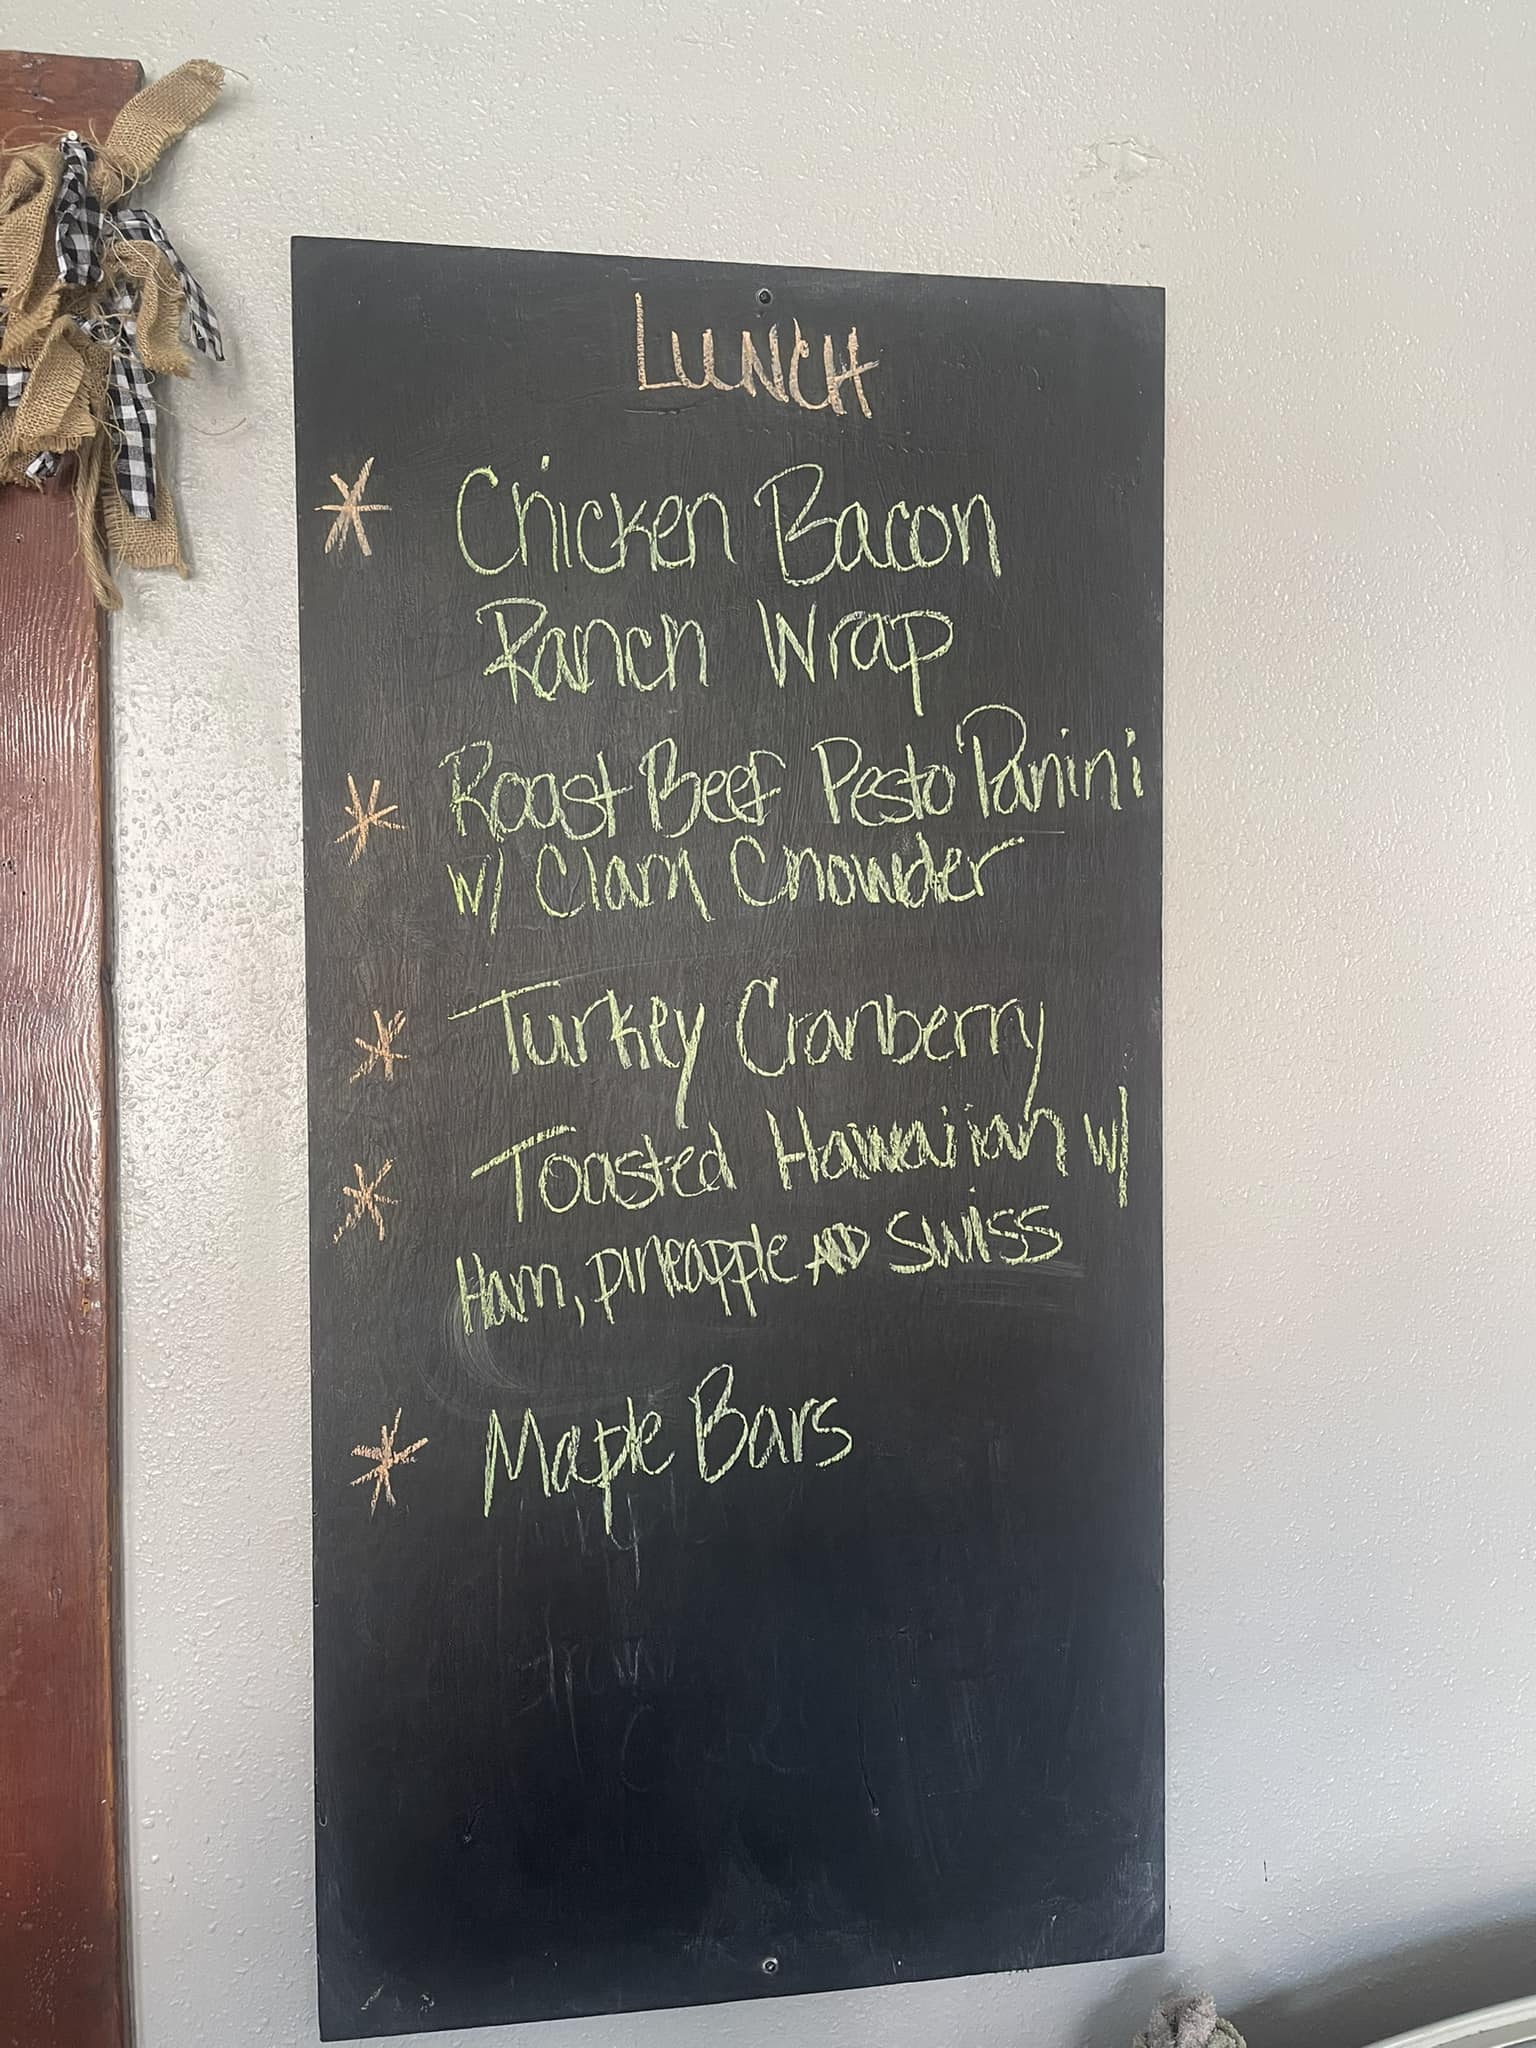 LUNCH
* Chicken Bacon
Ranch Wrap
* Roast Beef Pesto Panini
w/ Clam Chowder
* Turkey Cranberry
* Toasted Hawaiian w/
Ham, pineapple AND swiss
* Maple Bars